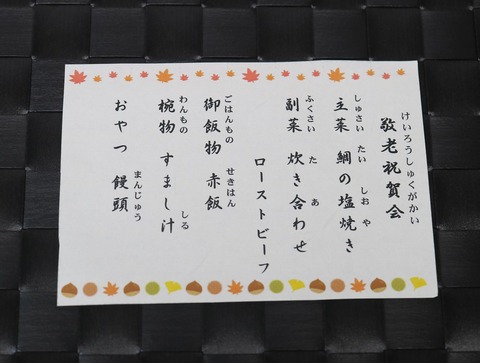 けいろうしゅくがかい
敬老祝賀会
しゅさい たい しお や
主菜 鯛の塩焼き
ふくさい た あ
副菜 炊き合わせ
ローストビーフ
ごはんもの せきはん
御飯物 赤飯
わんもの しる
椀物 すまし汁
まんじゅう
おやつ 饅頭